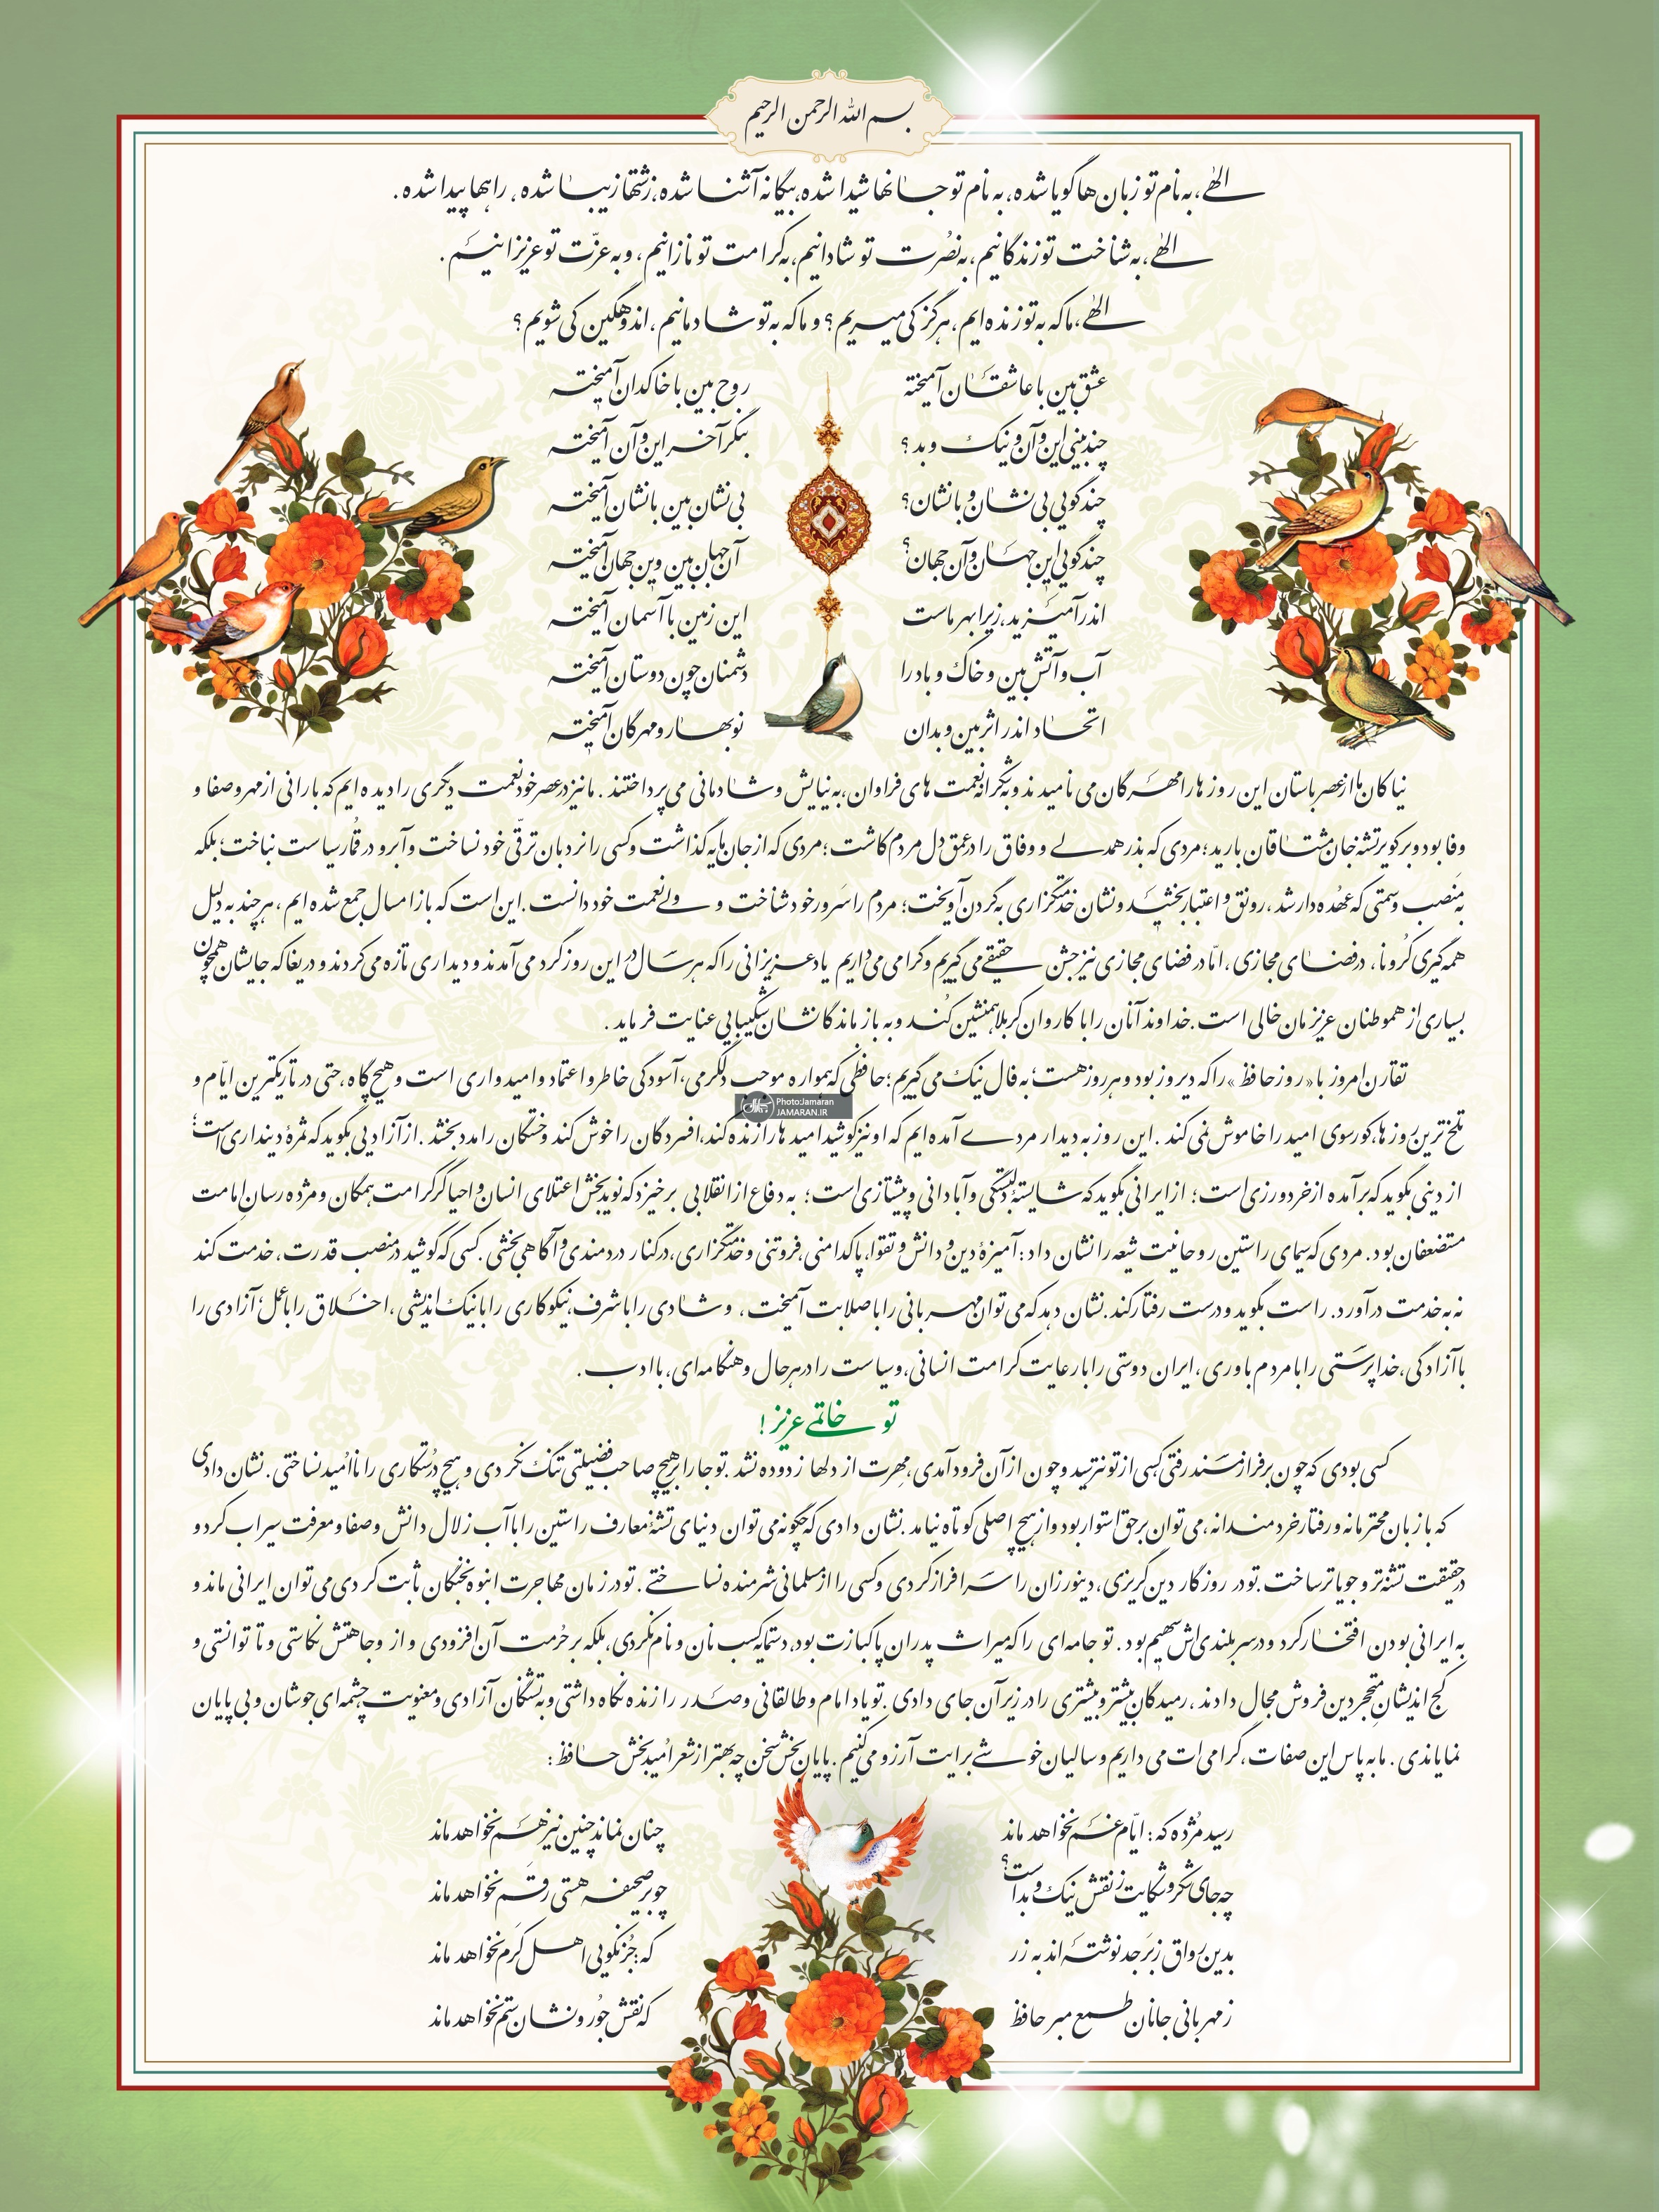 بسم الله الرحمن الرحیم
الهی، به نام تو زبان ها گویا شده، به نام تو جانها شیدا شده، بیگانه آشنا شده، زشتها زیبا شده، راهها پیدا شده.
الهی، به شناخت تو زندگانیم، به نصرت تو شادانیم، به کرامت تو نازانیم، و به عزّت تو عزیزانیم.
الهی، ما که به تو زنده ایم، هرگز کی میریم؟ و ما که به تو شادمانیم، اندوهگین کی شویم؟
عشق بین با عاشقان آمیخته
روح بین با خاکدان آمیخته
چند بینی این و آن و نیک و بد؟
بنگر آخر این و آن آمیخته
چند گویی بی نشان و با نشان؟
بی نشان بین با نشان آمیخته
چند گویی این جهان و آن جهان؟
آن جهان بین وین جهان آمیخته
اندر آمیزید، زیرا بهر ماست
این زمین با آسمان آمیخته
آب و آتش بین و خاک و باد را
دشمنان چون دوستان آمیخته
اتحاد اندر اثر بین و بدان
نوبهار و مهرگان آمیخته
نیاکان ما از عصر باستان این روزها را مهرگان می نامیدند و به شکرانه نعمت های فراوان، به نیایش و شادمانی می پرداختند. ما نیز در عصر خود نعمت دیگری را دیده ایم که بارانی از مهر و صفا و
وفا بود و بر کویر تشنه جان مشتاقان بارید؛ مردی که بذر همدلی و وفاق را در عمق دل مردم کاشت؛ مردی که از جان مایه گذاشت و کسی را نردبان ترقّی خود نساخت و آبرو در قمار سیاست نباخت؛ بلکه
به منصب و سمتی که عهده دار شد، رونق و اعتبار بخشید و نشان خدمتگزاری به گردن آویخت؛ مردم را سرور خود شناخت و ولی نعمت خود دانست. این است که باز امسال جمع شده ایم، هر چند به دلیل
همه گیری کُرونا، در فضای مجازی، امّا در فضای مجازی نیز جشن حقیقی می گیریم و گرامی می داریم یاد عزیزانی را که هر سال در این روز گرد می آمدند و دیداری تازه می کردند و دریغا که جایشان همچون
بسیاری از هموطنان عزیزمان خالی است. خداوند آنان را با کاروان کربلا همنشین کند و به بازماندگانشان شکیبایی عنایت فرماید.
تقارن امروز با «روز حافظ» را که دیروز بود و هر روز هست؛ به فال نیک می گیریم؛ حافظی که همواره موجب دلگرمی، آسودگی خاطر و اعتماد و امیدواری است و هیچ گاه، حتی در تاریکترین ایّام و
تلخ ترین روزها، کورسوی امید را خاموش نمی کند. این روز به دیدار مردی آمده ایم که او نیز کوشید امیدها را زنده کند، افسردگان را خوش کند و خستگان را مدد بخشد. از آزادیی بگوید که ثمرهٔ دینداری است؛
از دینی بگوید که برآمده از خردورزی است؛ از ایرانی بگوید که شایستهٔ دلبستگی و آبادانی و پیشتازی است؛ به دفاع از انقلابی برخیزد که نویدبخش اعتلای انسان و احیاگر کرامت همگان و مژده رسان امامت
مستضعفان بود. مردی که سیمای راستین روحانیت شیعه را نشان داد: آمیزهٔ دین و دانش و تقوا، پاکدامنی، فروتنی و خدمتگزاری، در کنار دردمندی و آگاهی بخشی. کسی که کوشید در منصب قدرت، خدمت کند
نه به خدمت درآورد. راست بگوید و درست رفتار کند. نشان دهد که می توان مهربانی را با صلابت آمیخت، و شادی را با شرف، نیکوکاری را با نیک اندیشی، اخلاق را با عمل؛ آزادی را
با آزادگی، خداپرستی را با مردم باوری، ایران دوستی را با رعایت کرامت انسانی، و سیاست را در هر حال و هنگامه ای، با ادب.
تو خاتمی عزیز!
کسی بودی که چون بر فراز مسند رفتی کسی از تو نترسید و چون از آن فرود آمدی، مهرت از دلها زدوده نشد. تو جا را بر هیچ صاحب فضیلتی تنگ نکردی و هیچ درستکاری را ناامید نساختی. نشان دادی
که با زبان محترمانه و رفتار خردمندانه، می توان بر حق استوار بود و از هیچ اصلی کوتاه نیامد. نشان دادی که چگونه می توان دنیای تشنهٔ معارف راستین را با آب زلال دانش و صفا و معرفت سیراب کرد و
در حقیقت تشنه تر و جویاتر ساخت. تو در روزگار دین گریزی، دینورزان را سرافراز کردی و کسی را از مسلمانی شرمنده نساختی. تو در زمان مهاجرت انبوه نخبگان ثابت کردی می توان ایرانی ماند و
به ایرانی بودن افتخار کرد و در سربلندی اش سهیم بود. تو جامه ای را که میراث پدران پاکبازت بود، دستمایه کسب نان و نام نکردی، بلکه بر حُرمت آن افزودی و از وجاهتش نکاستی و تا توانستی و
کج اندیشان متحجر دین فروش مجال دادند، رمیدگان بیشتر و بیشتری را در زیر آن جای دادی. تو یاد امام و طالقانی و صدر را زنده نگاه داشتی و به تشنگان آزادی و معنویت چشمه ای جوشان و بی پایان
نمایاندی. ما به پاس این صفات، گرامی ات می داریم و سالیان خوشی برایت آرزو می کنیم. پایان بخش سخن چه بهتر از شعر امیدبخش حافظ:
رسید مُژده که: ایّام غم نخواهد ماند
چنان نماند چنین نیز هم نخواهد ماند
چه جای شکر و شکایت ز نقش نیک و بد است؟
چو بر صحیفه هستی رقم نخواهد ماند
بدین رواق زبرجد نوشته اند به زر
که: جُز نکویی اهل کَرم نخواهد ماند
ز مهربانی جانان طمع مبر حافظ
که نقش جُور و نشان ستم نخواهد ماند
Photo:Jamaran
JAMARAN.IR